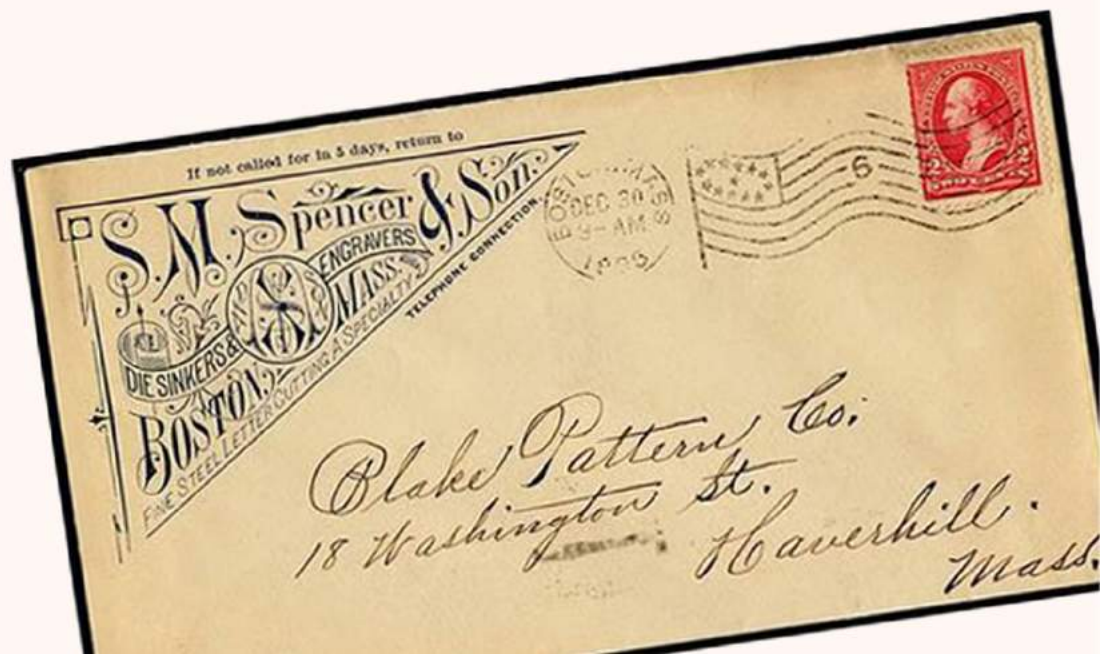 If not called for in 5 days, return to
S. M. Spencer & Son.
ENGRAVERS
DIE SINKERS &
BOSTON, MASS.
FINE STEEL LETTER CUTTING A SPECIALTY
TELEPHONE CONNECTION.
BOSTON MASS
DEC 30
9-AM
6
2 2
Blake Pattern Co.
18 Washington St.
Haverhill.
Mass.